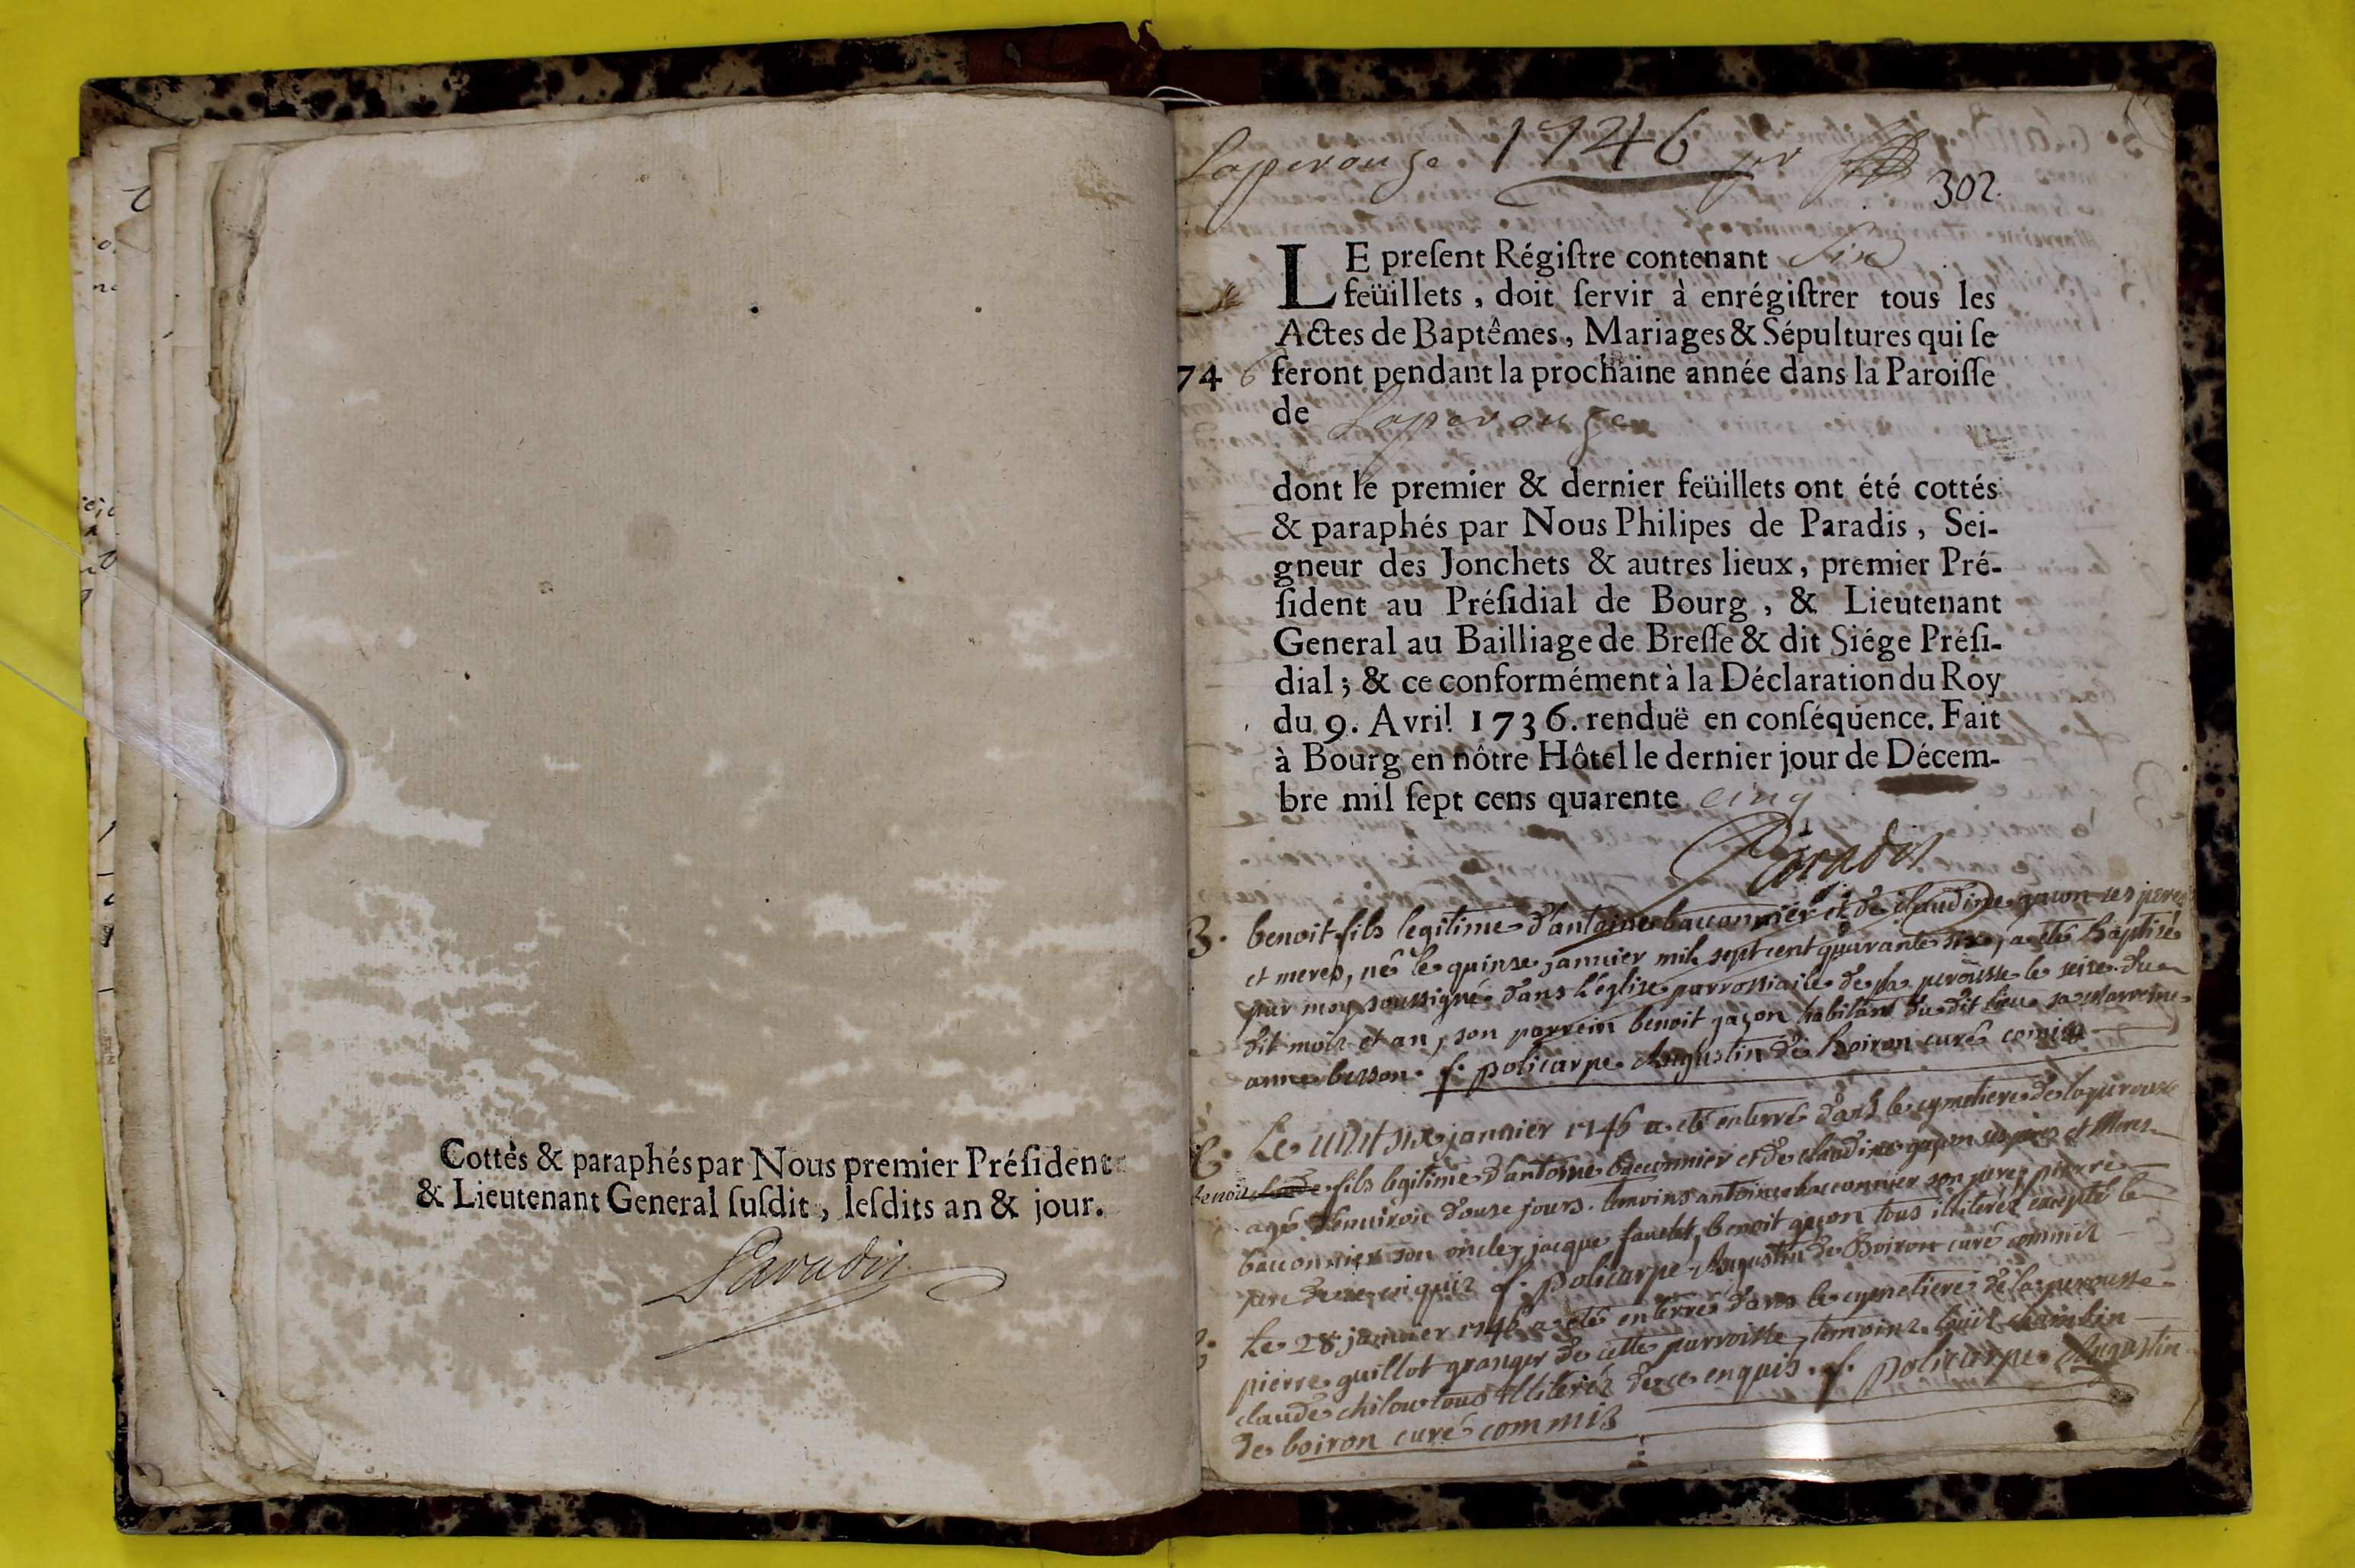 Cottés & paraphés par Nous premier Préſident
& Lieutenant General ſuſdit, leſdits an & jour.
Paradis
Laperouze 1746
302
LE preſent Régiſtre contenant Six
feüillets, doit ſervir à enrégiſtrer tous les
Actes de Baptêmes, Mariages & Sépultures qui ſe
746 feront pendant la prochaine année dans la Paroiſſe
de Laperouze
dont le premier & dernier feüillets ont été cottés
& paraphés par Nous Philipes de Paradis, Sei-
gneur des Jonchets & autres lieux, premier Pré-
ſident au Préſidial de Bourg, & Lieutenant
General au Bailliage de Breſſe & dit Siége Préſi-
dial; & ce conformément à la Déclaration du Roy
du 9. Avril 1736. renduë en conſéquence. Fait
à Bourg en nôtre Hôtel le dernier jour de Décem-
bre mil ſept cens quarente cinq
Paradis
B. benoit fils legitime d'antoine bauconnier et de claudine gaçon ses peres
et meres, né le quinse janvier mil sept cent quarante six, a été baptisé
par moy soussigné dans l'église parrossialle de la perousse le seise du
dit mois et an, son parrein benoit gaçon habitant du dit lieu sa marreine
anne besson. f. policarpe Augustin de boiron curé comis
Le vint six janvier 1746 a eté enterré dans le cymetiere de laperousse
benoit fils legitime d'antoine bauconnier et de claudine gaçon ses peres et meres
agé d'enuiron douse jours. temoins antoine bauconnier son pere, pierre
bauconnier son oncle, jacque fauelet, benoit gaçon tous illiterés excepté le
de ce enquis f. policarpe Augustin de Boiron curé commis
Le 28 janvier 1746 a été enterré dans le cymetiere de laperousse
pierre guillot granger de cette parroisse, temoins loüis chambin
claude chilou tous illiterés de ce enquis. f. policarpe Augustin
de boiron curé commis